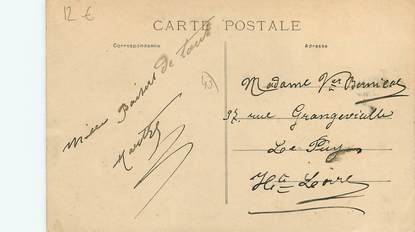 12 €
CARTE POSTALE
Correspondance
Adresse
Mille Baisers de tous
Marthe
Madame Vve
37, rue Grangevieille
Le Puy
Hte Loire